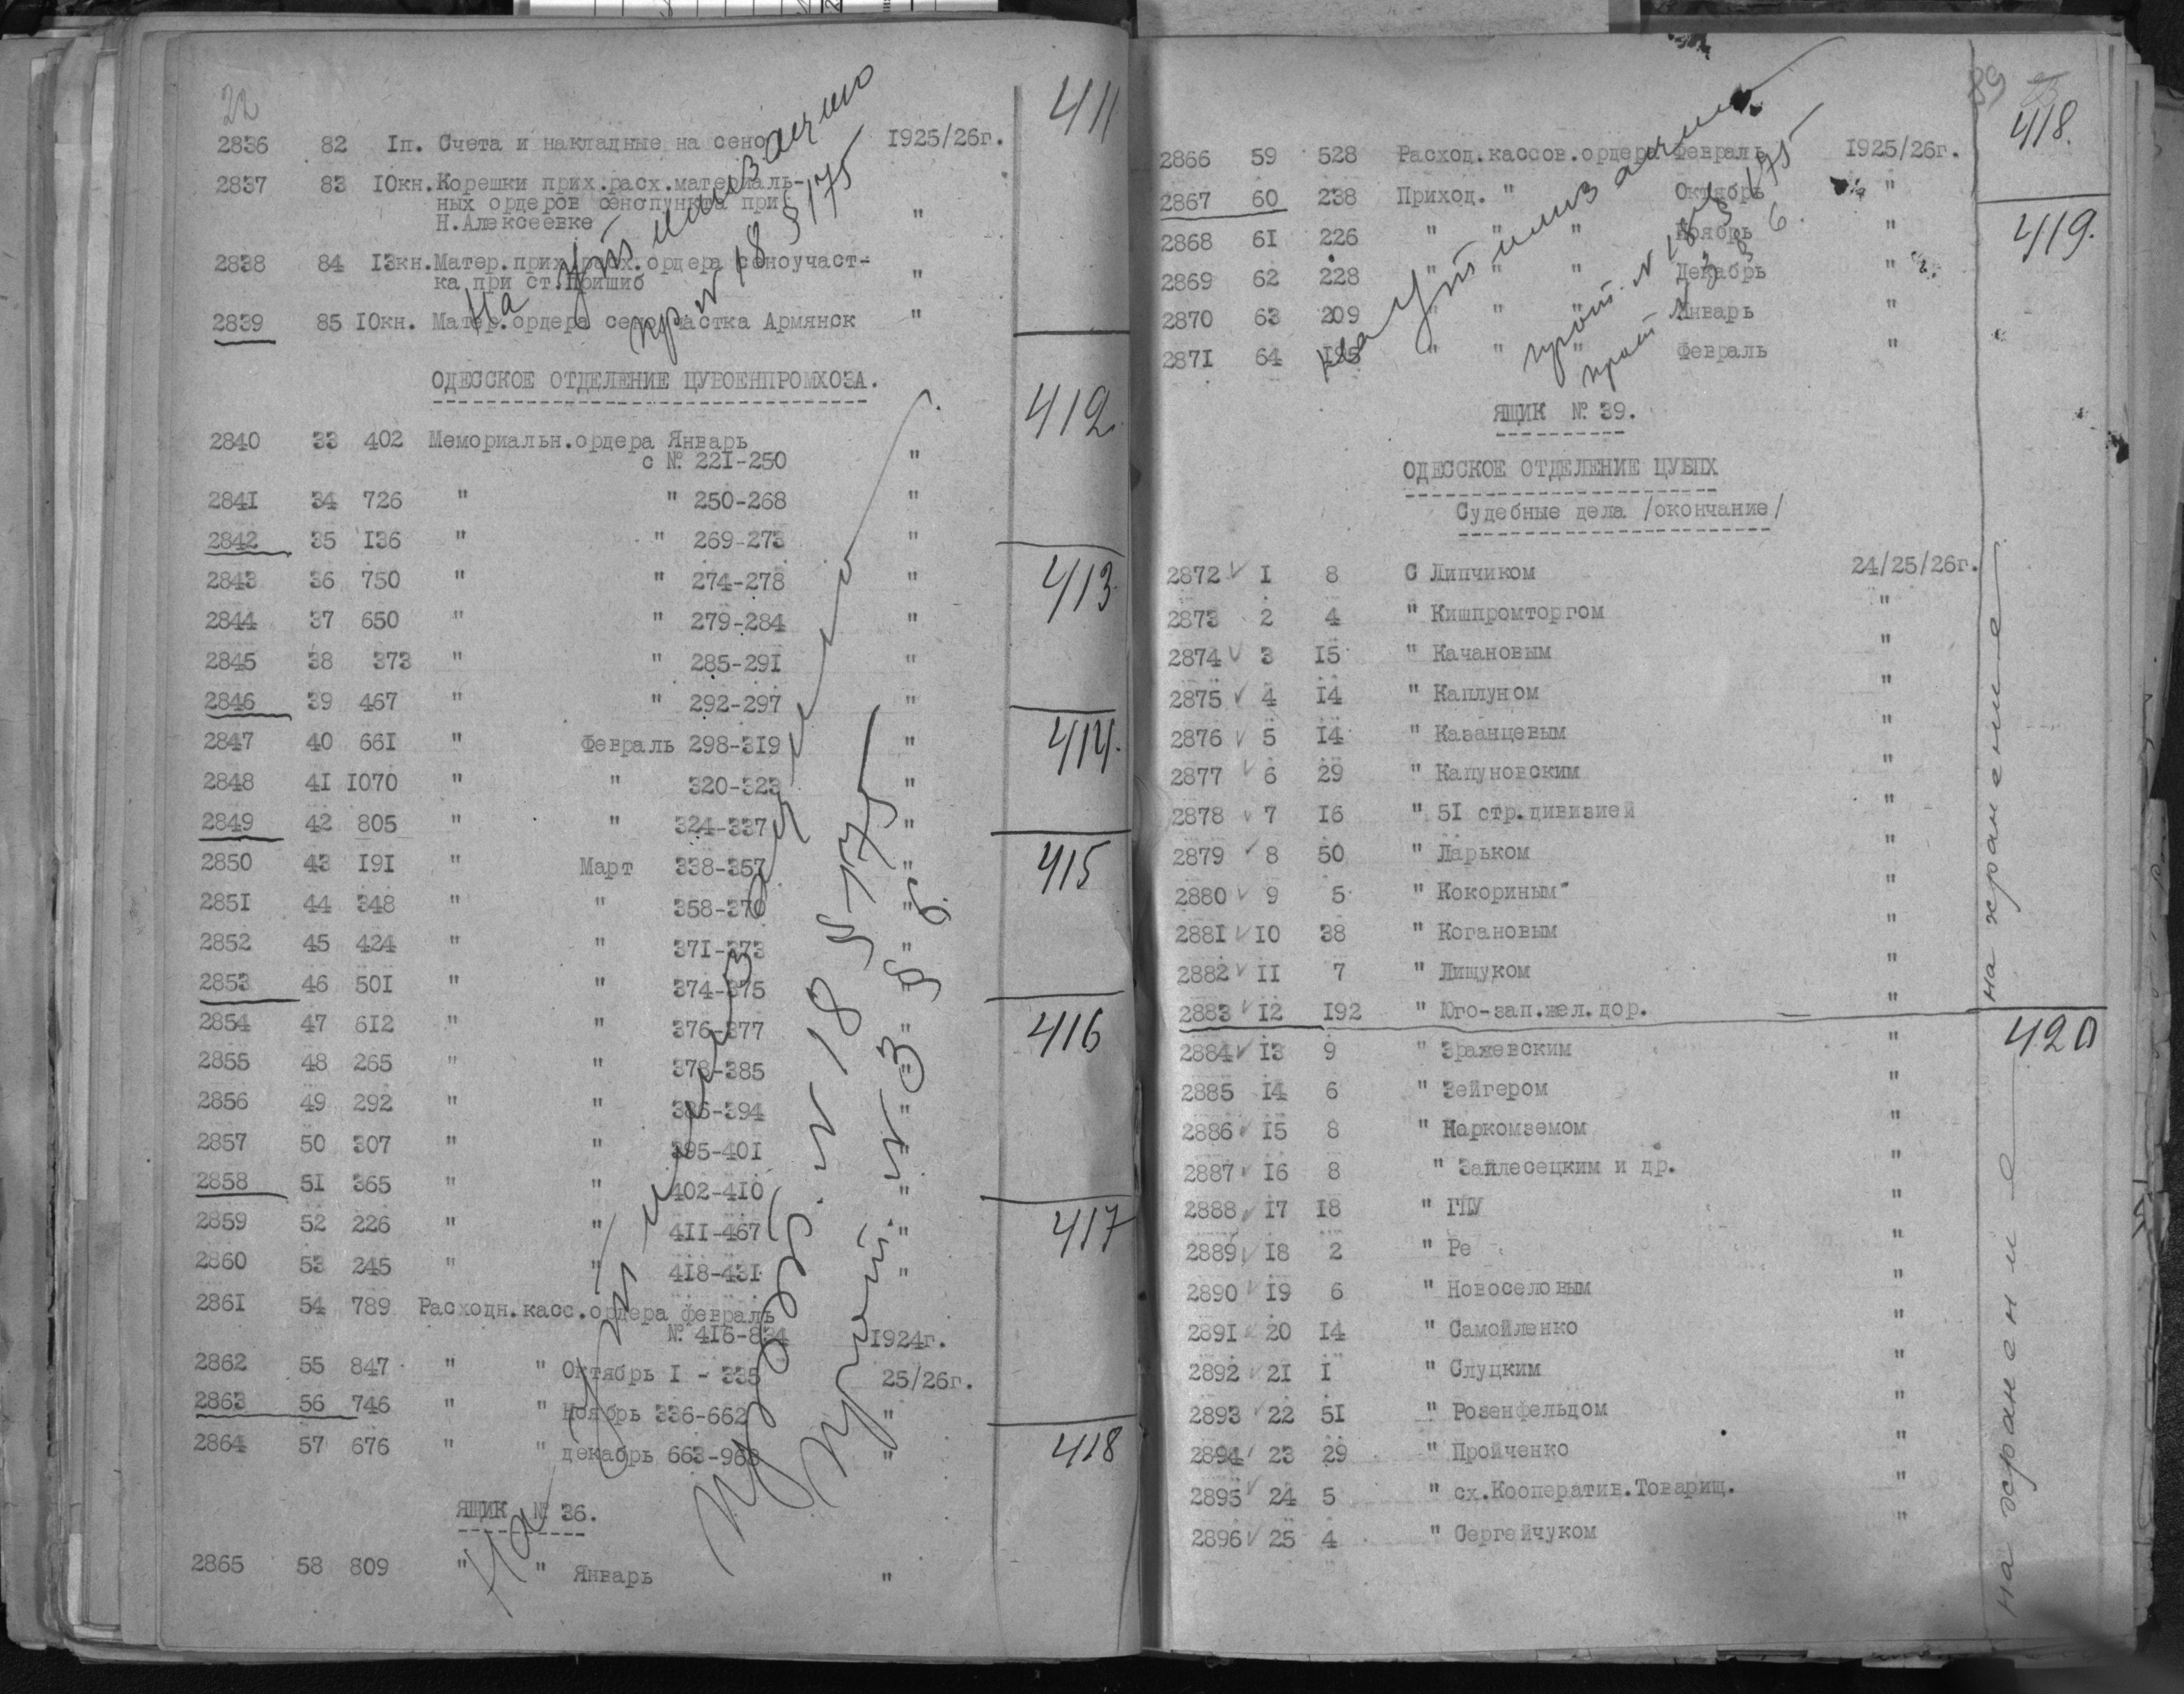 22
411
2836 82 1п. Счета и накладные на сено 1925/26г.
2837 83 10кн. Корешки прих.расх.материаль-
ных ордеров сенопункта при
Н.Алексеевке "
2838 84 13кн. Матер.прих.расх.ордера сеноучаст-
ка при ст.Пришиб "
2839 85 10кн. Матер.ордера сеноучастка Армянск "
На утилизацию
пр N 18 § 175
ОДЕССКОЕ ОТДЕЛЕНИЕ ЦУВОЕНПРОМХОЗА.
412
2840 33 402 Мемориальн.ордера Январь
с № 221-250 "
2841 34 726 " " 250-268 "
2842 35 136 " " 269-273 "
413
2843 36 750 " " 274-278 "
2844 37 650 " " 279-284 "
2845 38 373 " " 285-291 "
2846 39 467 " " 292-297 "
414.
2847 40 661 " Февраль 298-319 "
2848 41 1070 " " 320-323 "
2849 42 805 " " 324-337 "
415
2850 43 191 " Март 338-357 "
2851 44 348 " " 358-370 "
2852 45 424 " " 371-373 "
2853 46 501 " " 374-375 "
416
2854 47 612 " " 376-377 "
2855 48 265 " " 378-385 "
2856 49 292 " " 386-394 "
2857 50 307 " " 395-401 "
2858 51 365 " " 402-410 "
417
2859 52 226 " " 411-467 "
2860 53 245 " " 418-431 "
2861 54 789 Расходн.касс.ордера февраль
№ 416-834 1924г.
2862 55 847 " " Октябрь 1 - 335 25/26г.
2863 56 746 " " Ноябрь 336-662 "
418
2864 57 676 " " декабрь 663-968 "
ЯЩИК № 36.
2865 58 809 " " Январь "
На утилизацию
N 18 § 175
N 3 § 6.
89
418.
2866 59 528 Расход.кассов.ордера Февраль 1925/26г.
2867 60 238 Приход. " Октябрь "
419.
2868 61 226 " " " Ноябрь "
2869 62 228 " " " Декабрь "
2870 63 209 " " " Январь "
2871 64 195 " " " Февраль "
На утилизацию
прот. N 18 § 175
прот N 3 § 6.
ЯЩИК № 39.
ОДЕССКОЕ ОТДЕЛЕНИЕ ЦУВПХ
Судебные дела /окончание/
2872 1 8 С Липчиком 24/25/26г.
2873 2 4 " Кишпромторгом "
2874 3 15 " Качановым "
2875 4 14 " Каплуном "
2876 5 14 " Казанцевым "
2877 6 29 " Капуновским "
2878 7 16 " 51 стр.дивизией "
2879 8 50 " Ларьком "
2880 9 5 " Кокориным "
2881 10 38 " Когановым "
2882 11 7 " Лищуком "
2883 12 192 " Юго-зап.жел.дор. "
на хранение
420
2884 13 9 " Эражевским "
2885 14 6 " Зейгером "
2886 15 8 " Наркомземом "
2887 16 8 " Заплесецким и др. "
2888 17 18 " ГПУ "
2889 18 2 " Ре "
2890 19 6 " Новоселовым "
2891 20 14 " Самойленко "
2892 21 1 " Слуцким "
2893 22 51 " Розенфельдом "
2894 23 29 " Пройченко "
2895 24 5 " сх.Кооператив.Товарищ. "
2896 25 4 " Сергейчуком "
на хранение